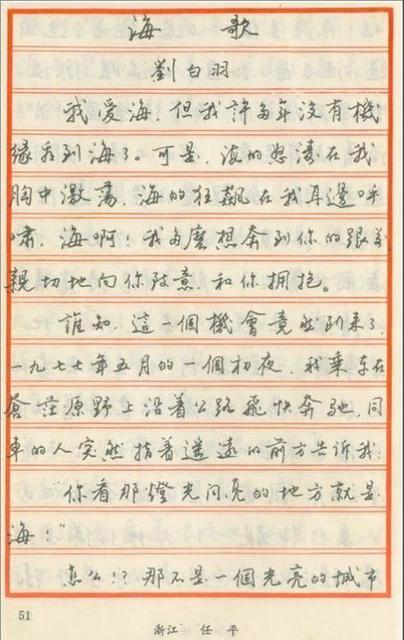 海 歌
劉白羽
我爱海,但我許多年没有機
缘看到海了。可是,海的怒濤在我
胸中激蕩,海的狂飆在我耳邊呼
嘯,海啊!我多麽想奔到你的跟前
親切地向你致意和你拥抱。
誰知,這一個機會竟然到来了,
一九七七年五月的一個初夜,我乘车在
蒼茫原野上沿着公路飛快奔馳,同
車的人突然指着遥遠的前方告訴我:
你看那燈光闪亮的地方就是
海!"
怎么!?那不是一個光亮的城市
51
浙江 任平